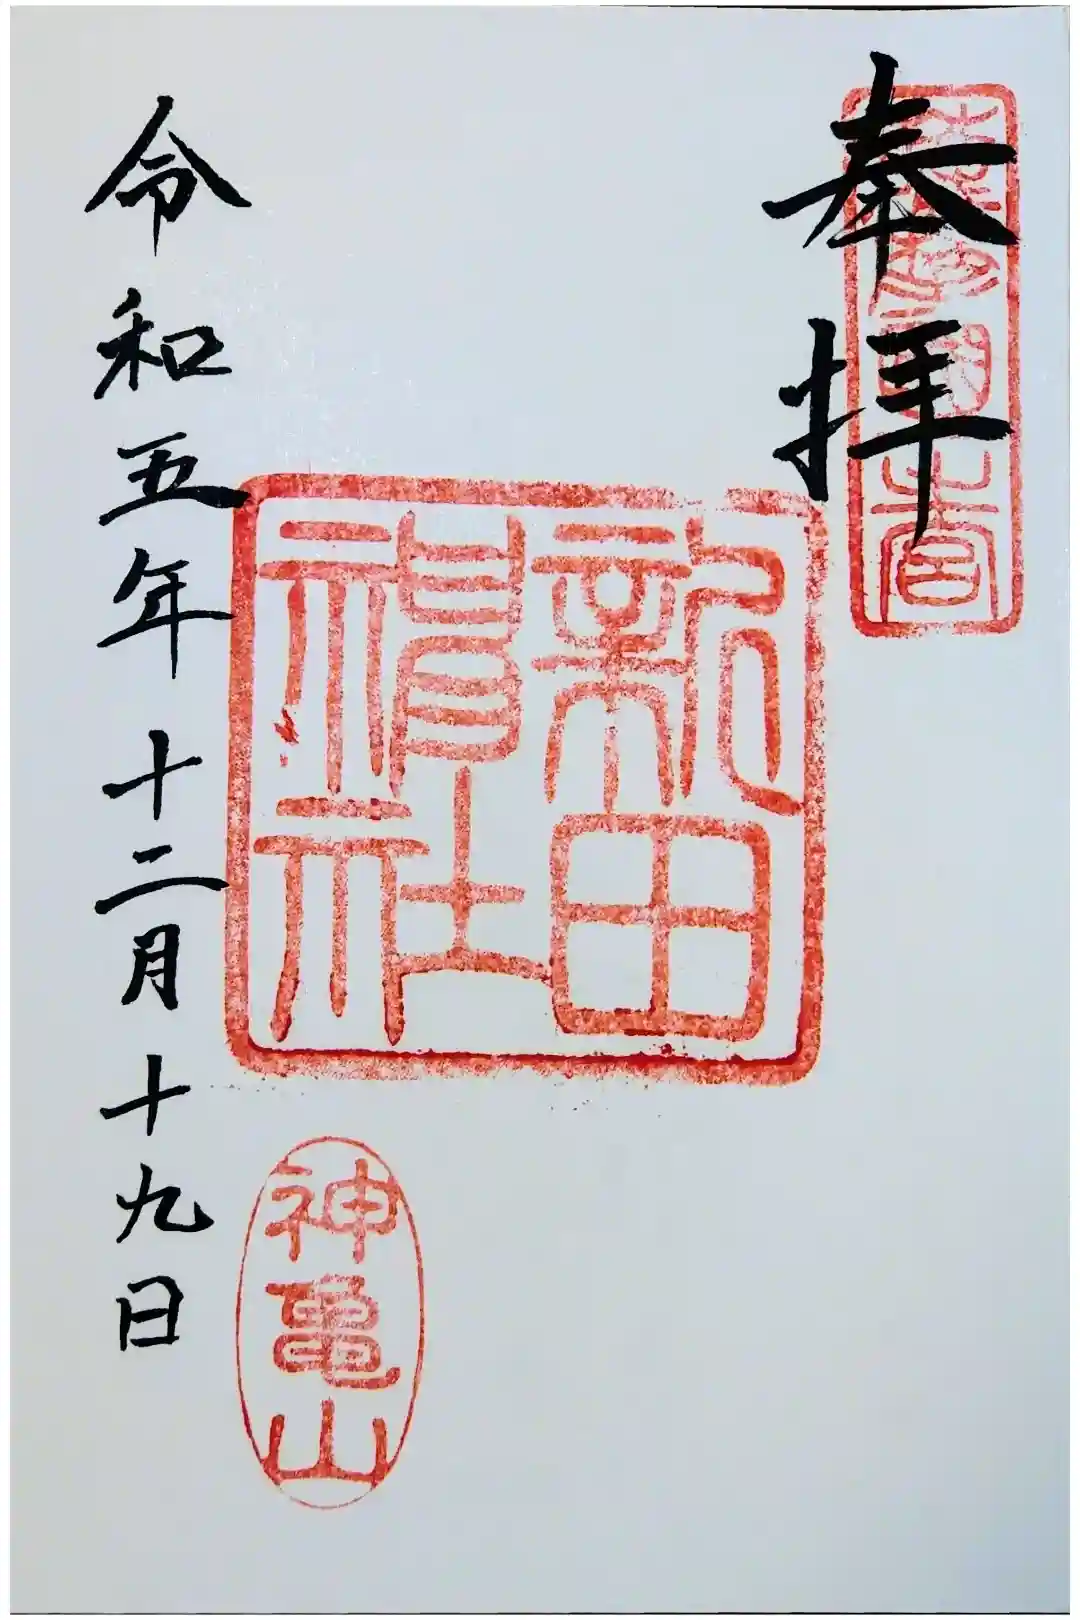 奉拝
新田
神社
令和五年十二月十九日
神亀山